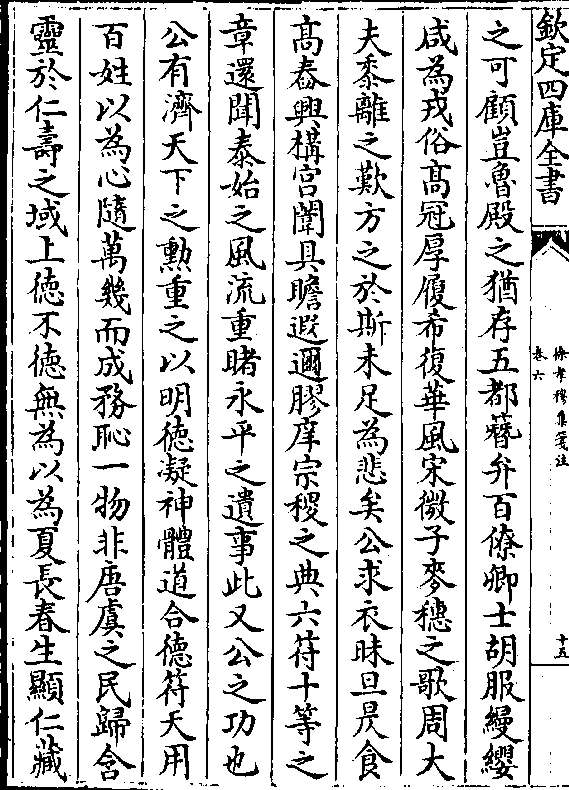 欽定四庫全書
徐孝穆集箋注
卷六
十五
之可顧豈魯殿之猶存五都簪弁百僚卿士胡服縵纓
咸為戎俗髙冠厚履希復華風宋微子麥穗之歌周大
夫黍離之歎方之於斯未足為悲矣公求衣昧旦昃食
髙舂興構宮闈具瞻遐邇膠庠宗稷之典六符十等之
章還聞泰始之風流重睹永平之遺事此又公之功也
公有濟天下之勲重之以明徳凝神體道合徳符天用
百姓以為心隨萬幾而成務恥一物非唐虞之民歸含
靈於仁壽之域上徳不徳無為以為夏長春生顯仁藏